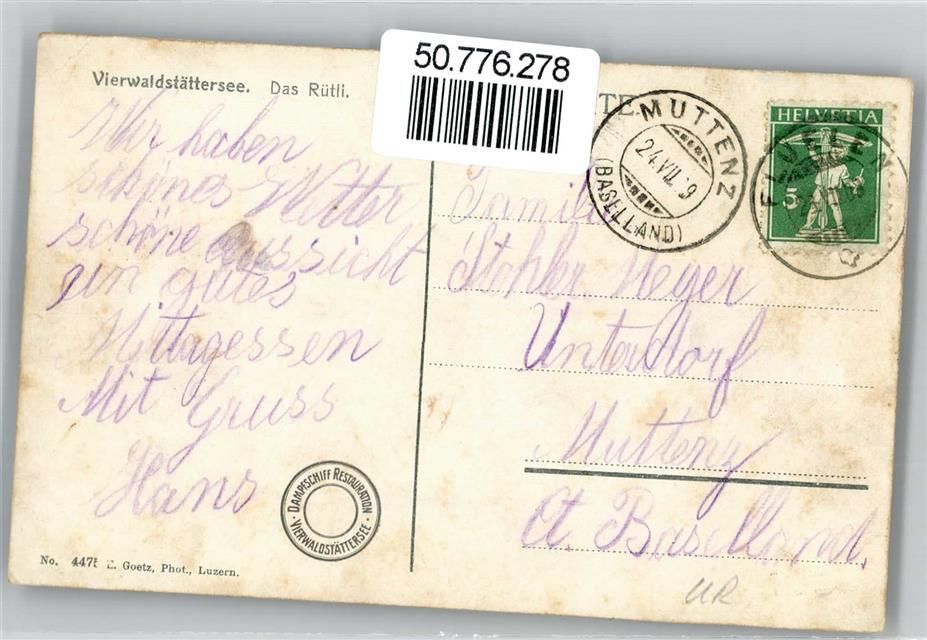 50.776.278
Vierwaldstättersee. Das Rütli.
Wir haben
schönes Wetter
schöne Aussicht
ein gutes
Mittagessen
Mit Gruss
Hans
DAMPFSCHIFF RESTAURATION
VIERWALDSTÄTTERSEE
No. 447 E. Goetz, Phot., Luzern.
TE.
MUTTENZ
24.VII. 9
(BASELLAND)
HELVETIA
5
FLUELEN
Familie
Stohler Meyer
Unterdorf
Muttenz
Ct. Baselland.
UR